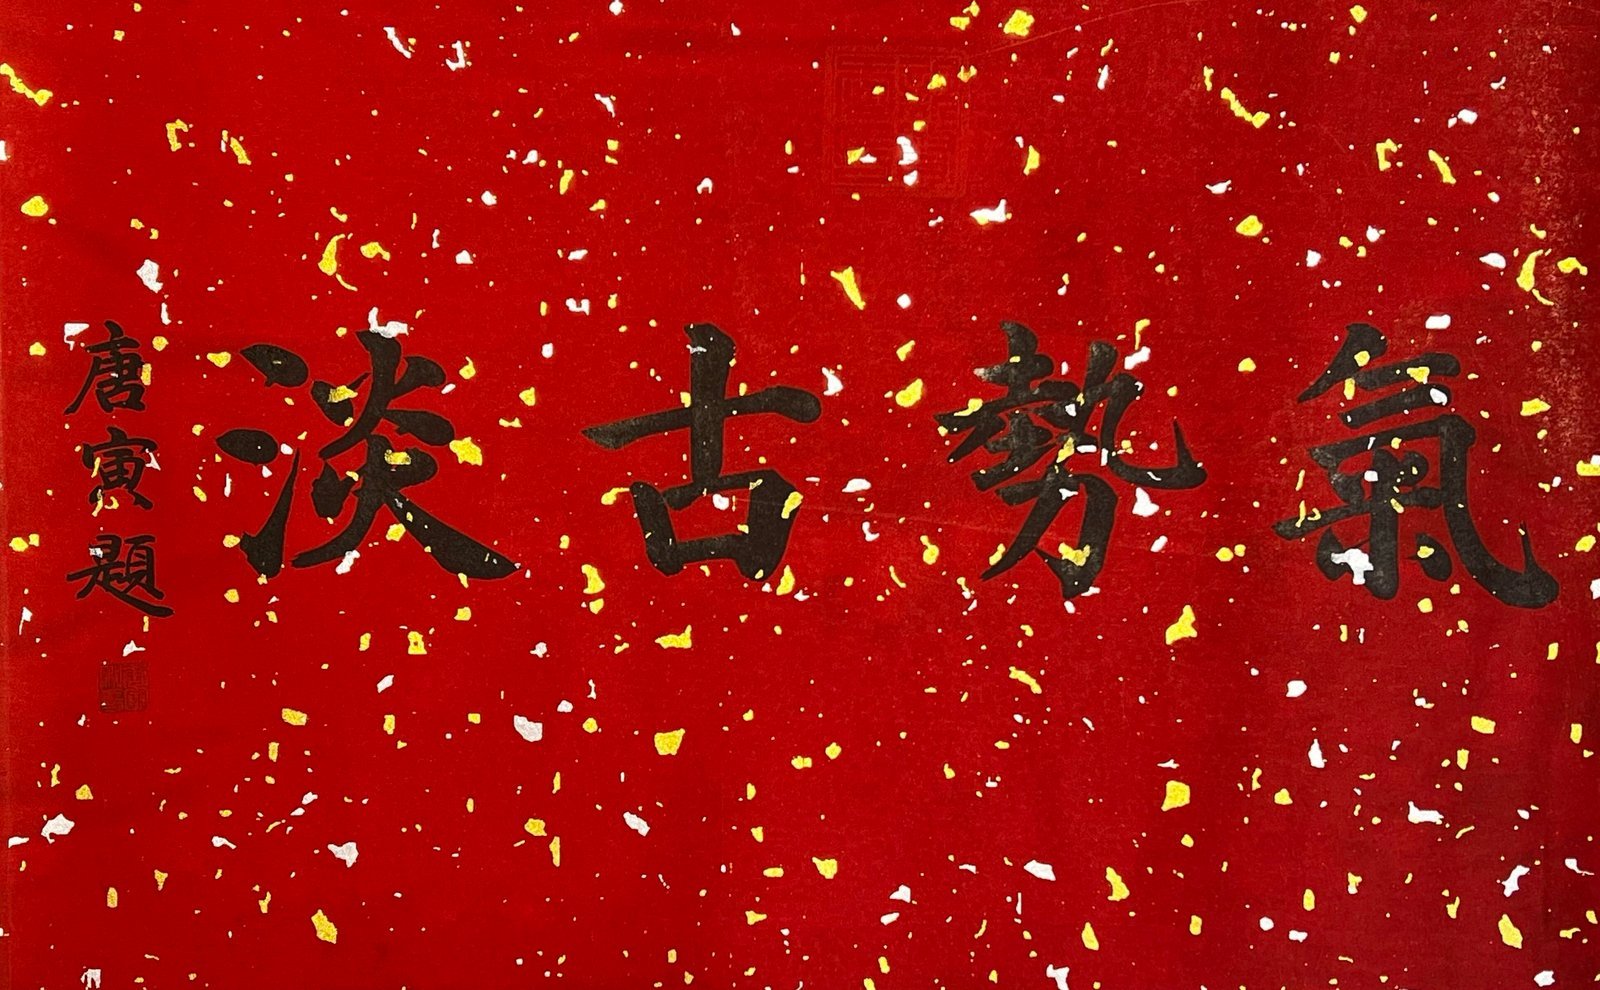 氣勢古淡
唐寅題